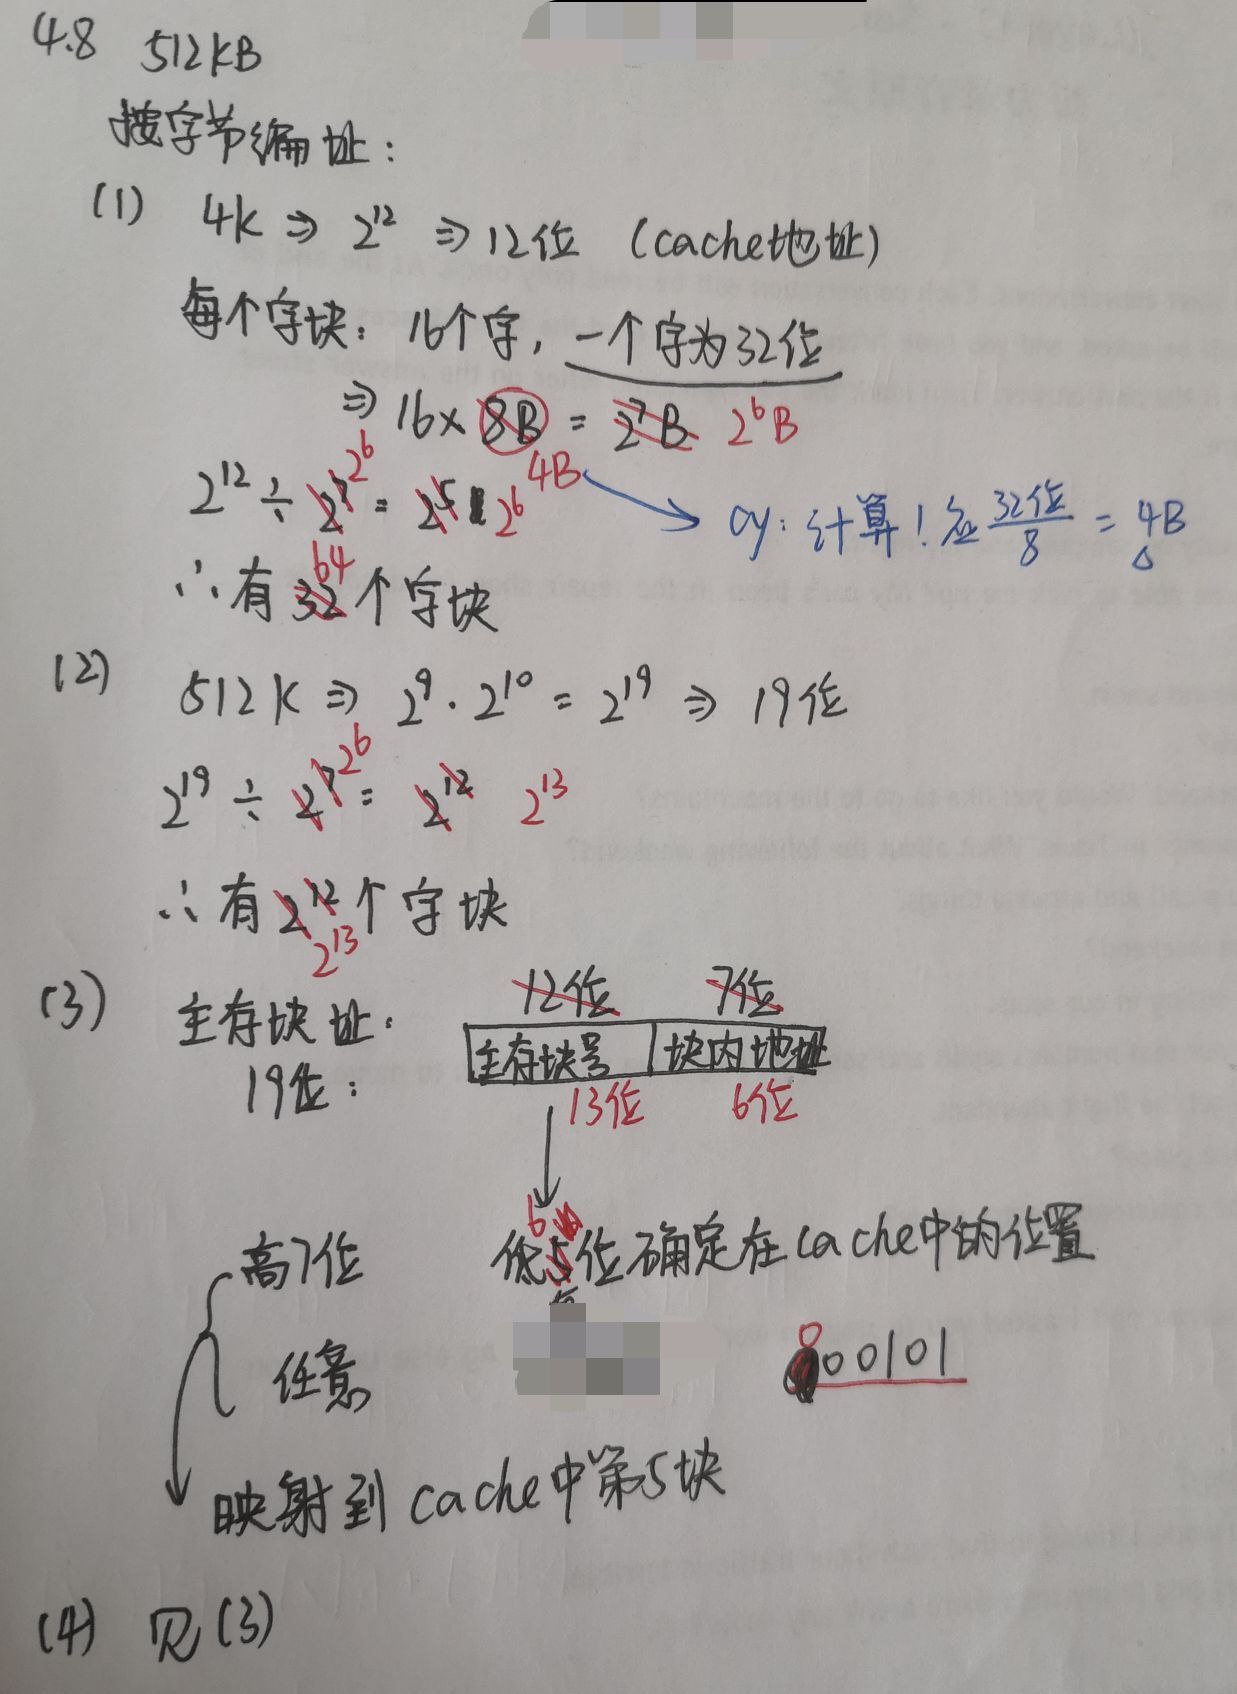 4.8 512KB
按字节编址：
(1) 4K ⇒ 2^12 ⇒ 12位 (cache地址)
每个字块：16个字，一个字为32位
⇒ 16 × 8B = 2^7 B 2^6 B
4B
2^12 ÷ 2^7 2^6 = 2^5 2^6
cy：计算！应 32位/8 = 4B
∴ 有 32 64 个字块
(2) 512K ⇒ 2^9 · 2^10 = 2^19 ⇒ 19位
2^19 ÷ 2^7 2^6 = 2^12 2^13
∴ 有 2^12 2^13 个字块
(3) 主存块址： 12位 7位
主存块号 块内地址
19位： 13位 6位
高7位 低 5 6 位确定在cache中的位置
任意 000101
映射到cache中第5块
(4) 见(3)